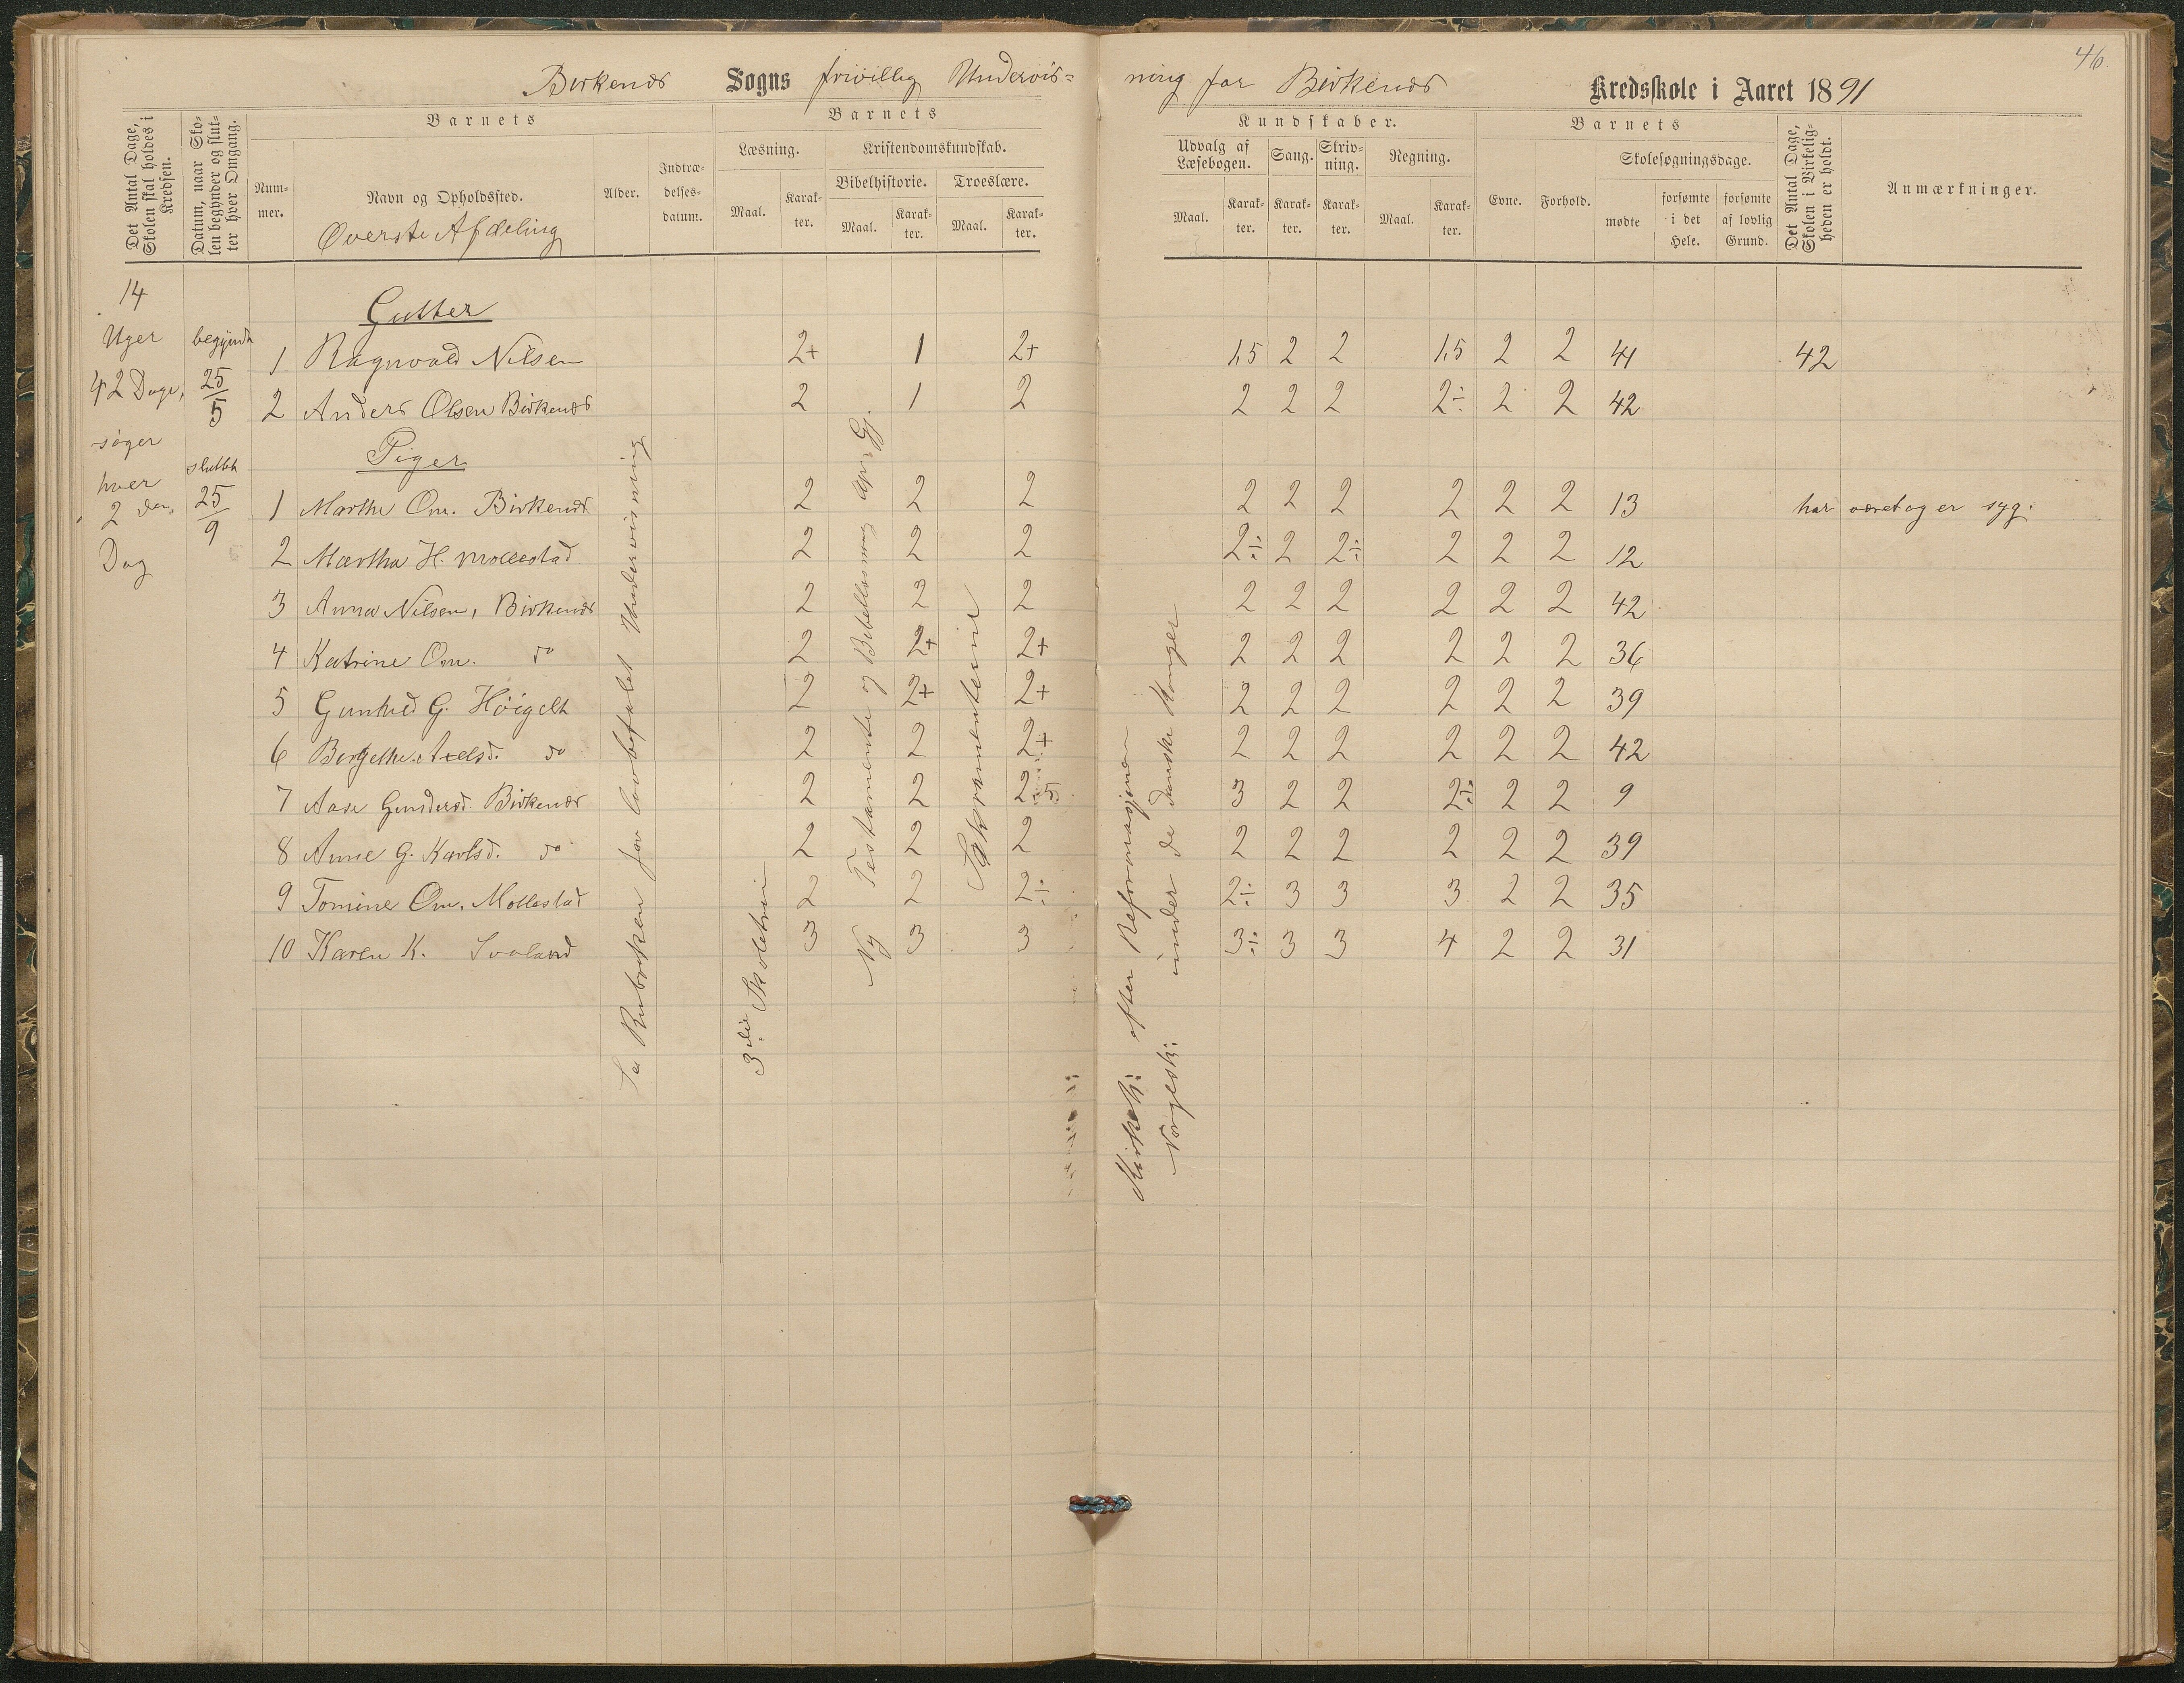 46.
Birkenæs Sogns frivillig Undervis=
ning for Birkenæs Kredsskole i Aaret 1891
Det Antal Dage, Skolen skal holdes i Kredsen.
Datum, naar Skolen begynder og slutter hver Omgang.
Barnets
Nummer.
Navn og Opholdssted.
Øverste Afdeling
Alder.
Indtrædelsesdatum.
Barnets
Læsning.
Maal.
Karakter.
Kristendomskundskab.
Bibelhistorie.
Maal.
Karakter.
Troeslære.
Maal.
Karakter.
Kundskaber.
Udvalg af Læsebogen.
Maal.
Karakter.
Sang.
Karakter.
Skrivning.
Karakter.
Regning.
Maal.
Karakter.
Barnets
Evne.
Forhold.
Skolesøgningsdage.
mødte
forsømte i det Hele.
forsømte af lovlig Grund.
Det Antal Dage, Skolen i Virkeligheden er holdt.
Anmærkninger.
14
Uger
42 Dage,
søger
hver
2 den
Dag
begyndt
25/5
sluttet
25/9
Gutter
1 Ragnvald Nilsen 2+ 1 2+ 1,5 2 2 1,5 2 2 41 42
2 Anders Olsen Birkenæs 2 1 2 2 2 2 2÷ 2 2 42
Piger
1 Marthe Om. Birkenæs 2 2 2 2 2 2 2 2 2 13 har været og er syg.
2 Martha H. Mollestad 2 2 2 2÷ 2 2÷ 2 2 2 12
3 Anna Nilsen, Birkenæs 2 2 2 2 2 2 2 2 2 42
4 Katrine Om. do 2 2+ 2+ 2 2 2 2 2 2 36
5 Gunhild G. Høigelt 2 2+ 2+ 2 2 2 2 2 2 39
6 Bergethe Axelsd. do 2 2 2+ 2 2 2 2 2 2 42
7 Aase Gundersd. Birkenæs 2 2 2,5 3 2 2 2÷ 2 2 9
8 Anne G. Karlsd. do 2 2 2 2 2 2 2 2 2 39
9 Tomine Om. Mollestad 2 2 2÷ 2÷ 3 3 3 2 2 35
10 Karen K. Svaland 3 3 3 3÷ 3 3 4 2 2 31
Se Rubriken for lovbefalet Undervisning
3die Skoletrin
Ny Testamente og Bibellæsning Ap. Gj.
Sakramenterne
Kirkeh: efter Reformasjonen
Norgesh: under de danske Konger